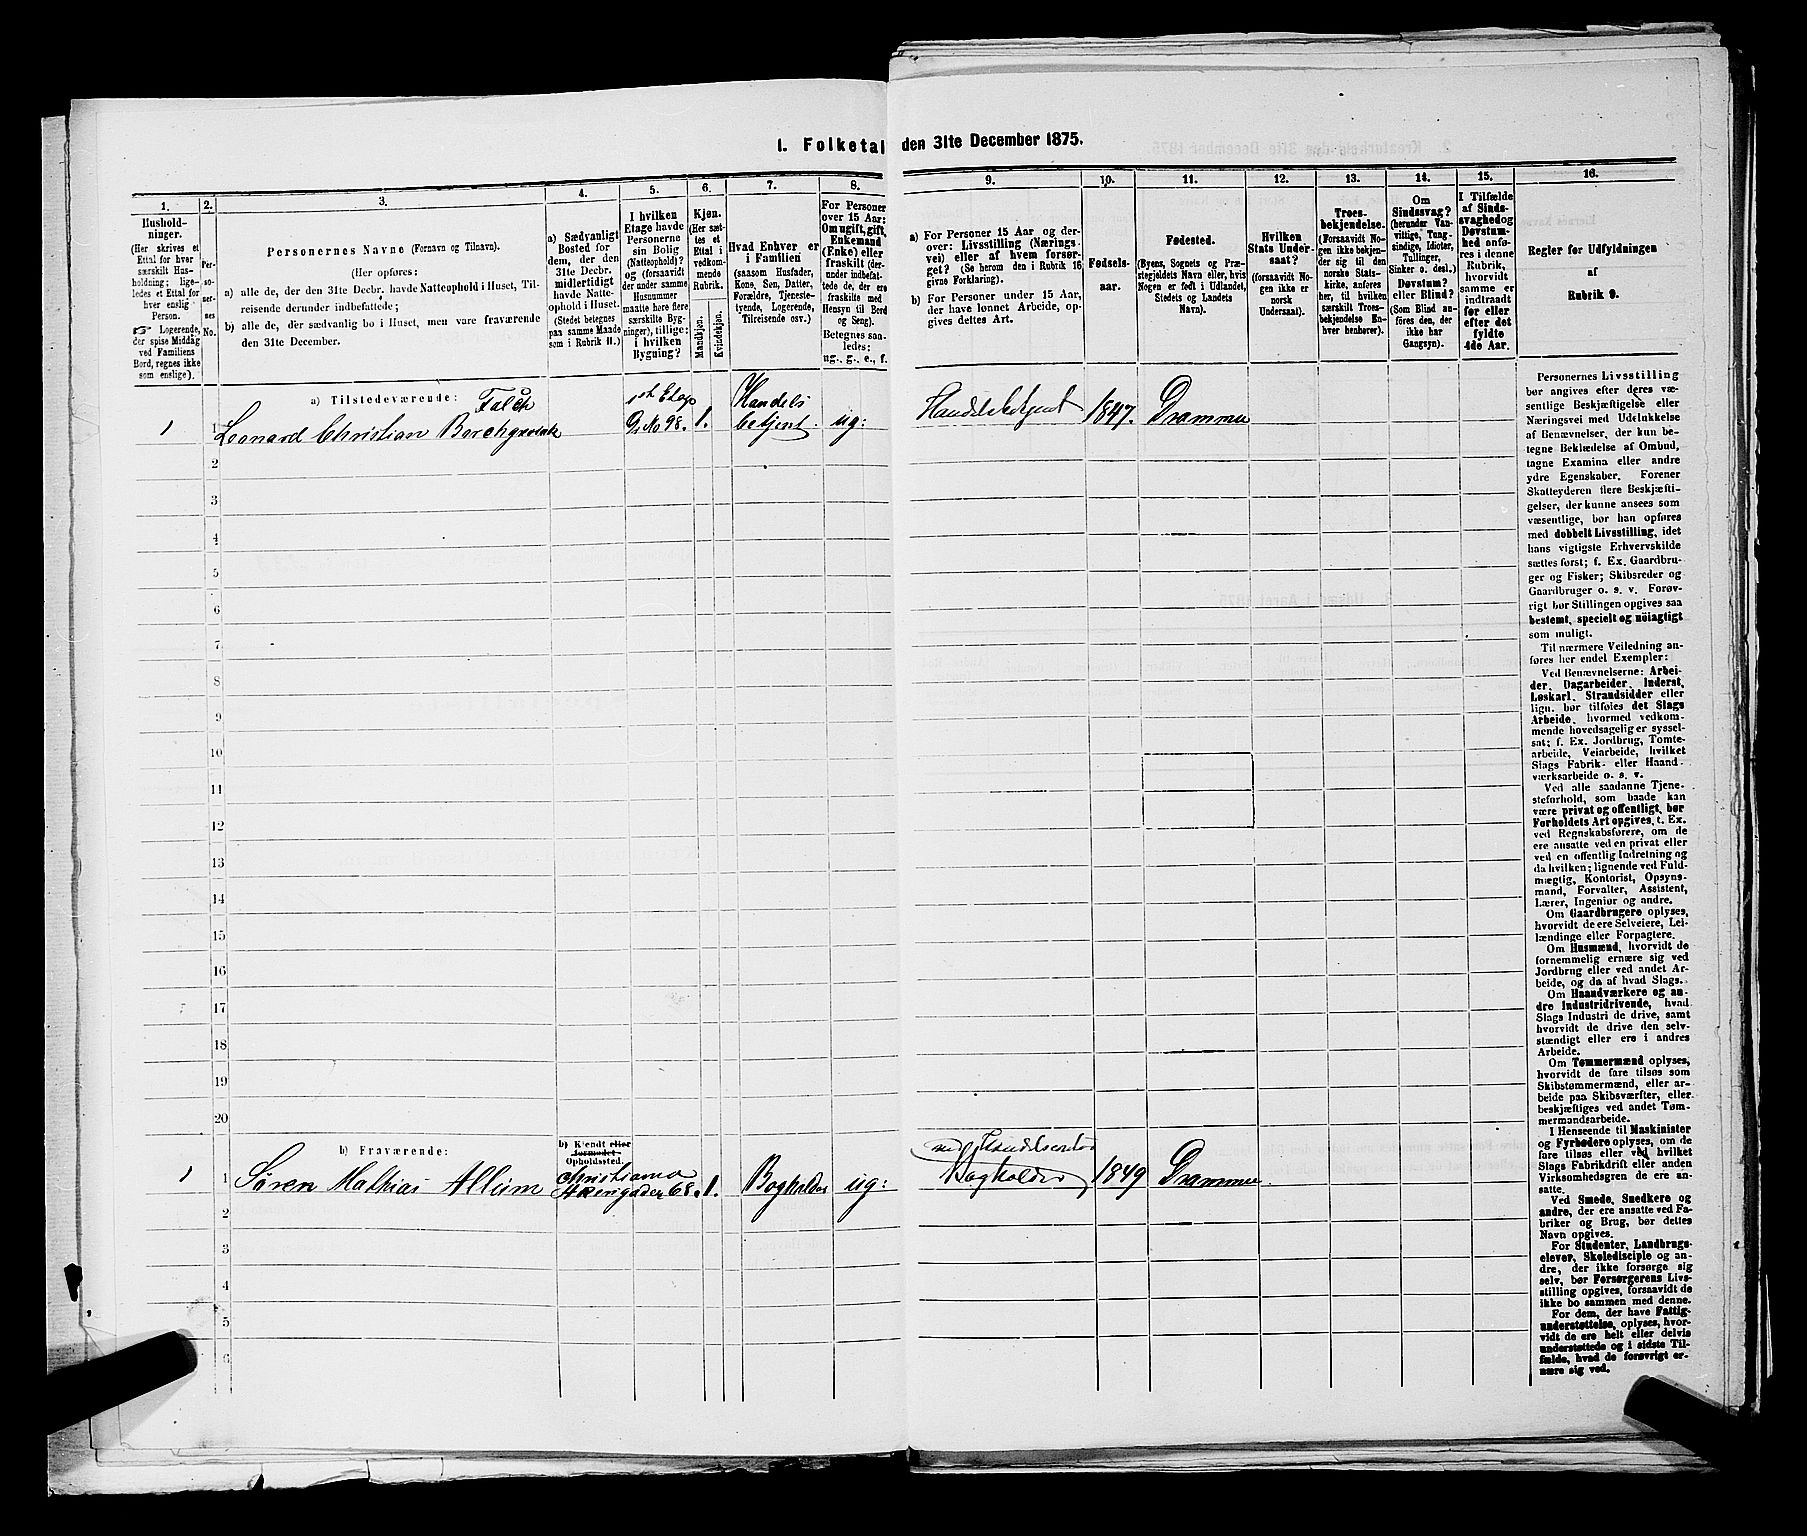 I. Folketal den 31te December 1875.
1.
Hushold-
ninger.
(Her skrives et
Ettal for hver
særskilt Hus-
holdning; lige-
ledes et Ettal for
hver enslig
Person.
☞ Logerende,
der spise Middag
ved Familiens
Bord, regnes ikke
som enslige).
2.
Per-
so-
ner-
nes
No.
3.
Personernes Navne (Fornavn og Tilnavn).
(Her opføres:
a) alle de, der den 31te Decbr. havde Natteophold i Huset, Til-
reisende derunder indbefattede;
b) alle de, der sædvanlig bo i Huset, men vare fraværende
den 31te December.
4.
a) Sædvanligt
Bosted for
dem, der den
31te Decbr.
midlertidigt
havde Natte-
ophold i Huset.
(Stedet betegnes
paa samme Maade
som i Rubrik 11.)
5.
I hvilken
Etage havde
Personerne
sin Bolig
(Natteophold)?
og (forsaavidt
der under samme
Husnummer
maatte høre flere
særskilte Byg-
ninger), tillige:
i hvilken
Bygning?
6.
Kjøn.
(Her sæt-
tes et
Ettal i
vedkom-
mende
Rubrik.
Mandkjøn.
Kvindekjøn.
7.
Hvad Enhver er
i Familien
(saasom Husfader,
Kone, Søn, Datter,
Forældre, Tjeneste-
tyende, Logerende,
Tilreisende osv.)
8.
For Personer
over 15 Aar:
Om ugift, gift,
Enkemand
(Enke) eller
fraskilt (der-
under indbefat-
tede de, der ere
fraskilte med
Hensyn til Bord
og Seng).
Betegnes saa-
ledes:
ug., g., e., f.
9.
a) For Personer 15 Aar og der-
over: Livsstilling (Nærings-
vei) eller af hvem forsør-
get? (Se herom den i Rubrik 16
givne Forklaring).
b) For Personer under 15 Aar,
der have lønnet Arbeide, op-
gives dettes Art.
10.
Fødsels-
aar.
11.
Fødested.
(Byens, Sognets og Præ-
stegjeldets Navn eller, hvis
Nogen er født i Udlandet,
Stedets og Landets
Navn).
12.
Hvilken
Stats Under-
saat?
(forsaavidt No-
gen ikke er
norsk
Undersaat).
13.
Troes-
bekjendelse.
(Forsaavidt No-
gen ikke bekjen-
der sig til den
norske Stats-
kirke, anføres
her, til hvilken
særskilt Troes-
bekjendelse En-
hver henhører).
14.
Om
Sindssvag?
(herunder Van-
vittige, Tung-
sindige, Idioter,
Tullinger,
Sinker o. desl.)
Døvstum?
eller Blind?
(Som Blind an-
føres den, der
ikke har
Gangsyn).
15.
I Tilfælde
af Sinds-
svaghed og
Døvstum-
hed anfø-
res i denne
Rubrik,
hvorvidt
samme er
indtraadt
før eller
efter det
fyldte
4de Aar.
16.
Regler for Udfyldningen
af
Rubrik 9.
a) Tilstedeværende:
1 1 Leonard Christian Falck Borchgrevink 1st Etage G. No 98. 1. Handels betjent. ug: Handelsbetjent 1847. Drammen
2
3
4
5
6
7
8
9
10
11
12
13
14
15
16
17
18
19
20
b) Fraværende:
b) Kjendt eller
formodet
Opholdssted.
1 1 Søren Mathias Allum Christiania Akersgaden 68. 1. Bogholder ug: Bogholder ved Handelscontor 1849 Drammen
2
3
4
5
6
Personernes Livsstilling
bør angives efter deres væ-
sentlige Beskjæftigelse eller
Næringsvei med Udelukkelse
af Benævnelser, der kun be-
tegne Beklædelse af Ombud,
tagne Examina eller andre
ydre Egenskaber. Forener
Skatteyderen flere Beskjæfti-
gelser, der kunne ansees som
væsentlige, bør han opføres
med dobbelt Livsstilling, idet
hans vigtigste Erhvervskilde
sættes først; f. Ex. Gaardbru-
ger og Fisker; Skibsreder og
Gaardbruger o. s. v. Forøv-
rigt bør Stillingen opgives saa
bestemt, specielt og nöiagtigt
som muligt.
Til nærmere Veiledning an-
føres her endel Exempler:
Ved Benævnelserne: Arbei-
der, Dagarbeider, Inderst,
Løskarl, Strandsidder eller
lign. bør tilføies det Slags
Arbeide, hvormed vedkom-
mende hovedsagelig er syssel-
sat; f. Ex. Jordbrug, Tomte-
arbeide, Veiarbeide, hvilket
Slags Fabrik- eller Haand-
værksarbeide o. s. v.
Ved alle saadanne Tjene-
steforhold, som baade kan
være privat og offentligt, bør
Forholdets Art opgives, t. Ex.
ved Regnskabsførere, om de
ere ansatte ved en privat eller
ved en offentlig Indretning og
da hvilken; lignende ved Fuld-
mægtig, Kontorist, Opsyns-
mand, Forvalter, Assistent,
Lærer, Ingeniør og andre.
Om Gaardbrugere oplyses,
hvorvidt de ere Selveiere, Lei-
lændinge eller Forpagtere.
Om Husmænd, hvorvidt de
fornemmelig ernære sig ved
Jordbrug eller ved andet Ar-
beide, og da af hvad Slags.
Om Haandværkere og an-
dre Industridrivende, hvad
Slags Industri de drive, samt
hvorvidt de drive den selv-
stændigt eller ere i andres
Arbeide.
Om Tømmermænd oplyses,
hvorvidt de fare tilsøs som
Skibstømmermænd, eller ar-
beide paa Skibsværfter, eller
beskjæftiges ved andet Tøm-
mermandsarbeide.
I Henseende til Maskinister
og Fyrbødere oplyses, om de
fare tilsøs eller ved hvilket
Slags Fabrikdrift eller anden
Virksomhedsgren de ere an-
satte.
Ved Smede, Snedkere og
andre, der ere ansatte ved Fa-
briker og Brug, bør dettes
Navn opgives.
For Studenter, Landbrugs-
elever, Skoledisciple og an-
dre, der ikke forsørge sig
selv, bør Forsørgerens Livs-
stilling opgives, forsaavidt de
ikke bo sammen med denne.
For dem, der have Fattig-
understøttelse, oplyses, hvor-
vidt de ere helt eller delvis
understøttede og i sidste Til-
fælde, hvad de forøvrigt er-
nære sig ved.